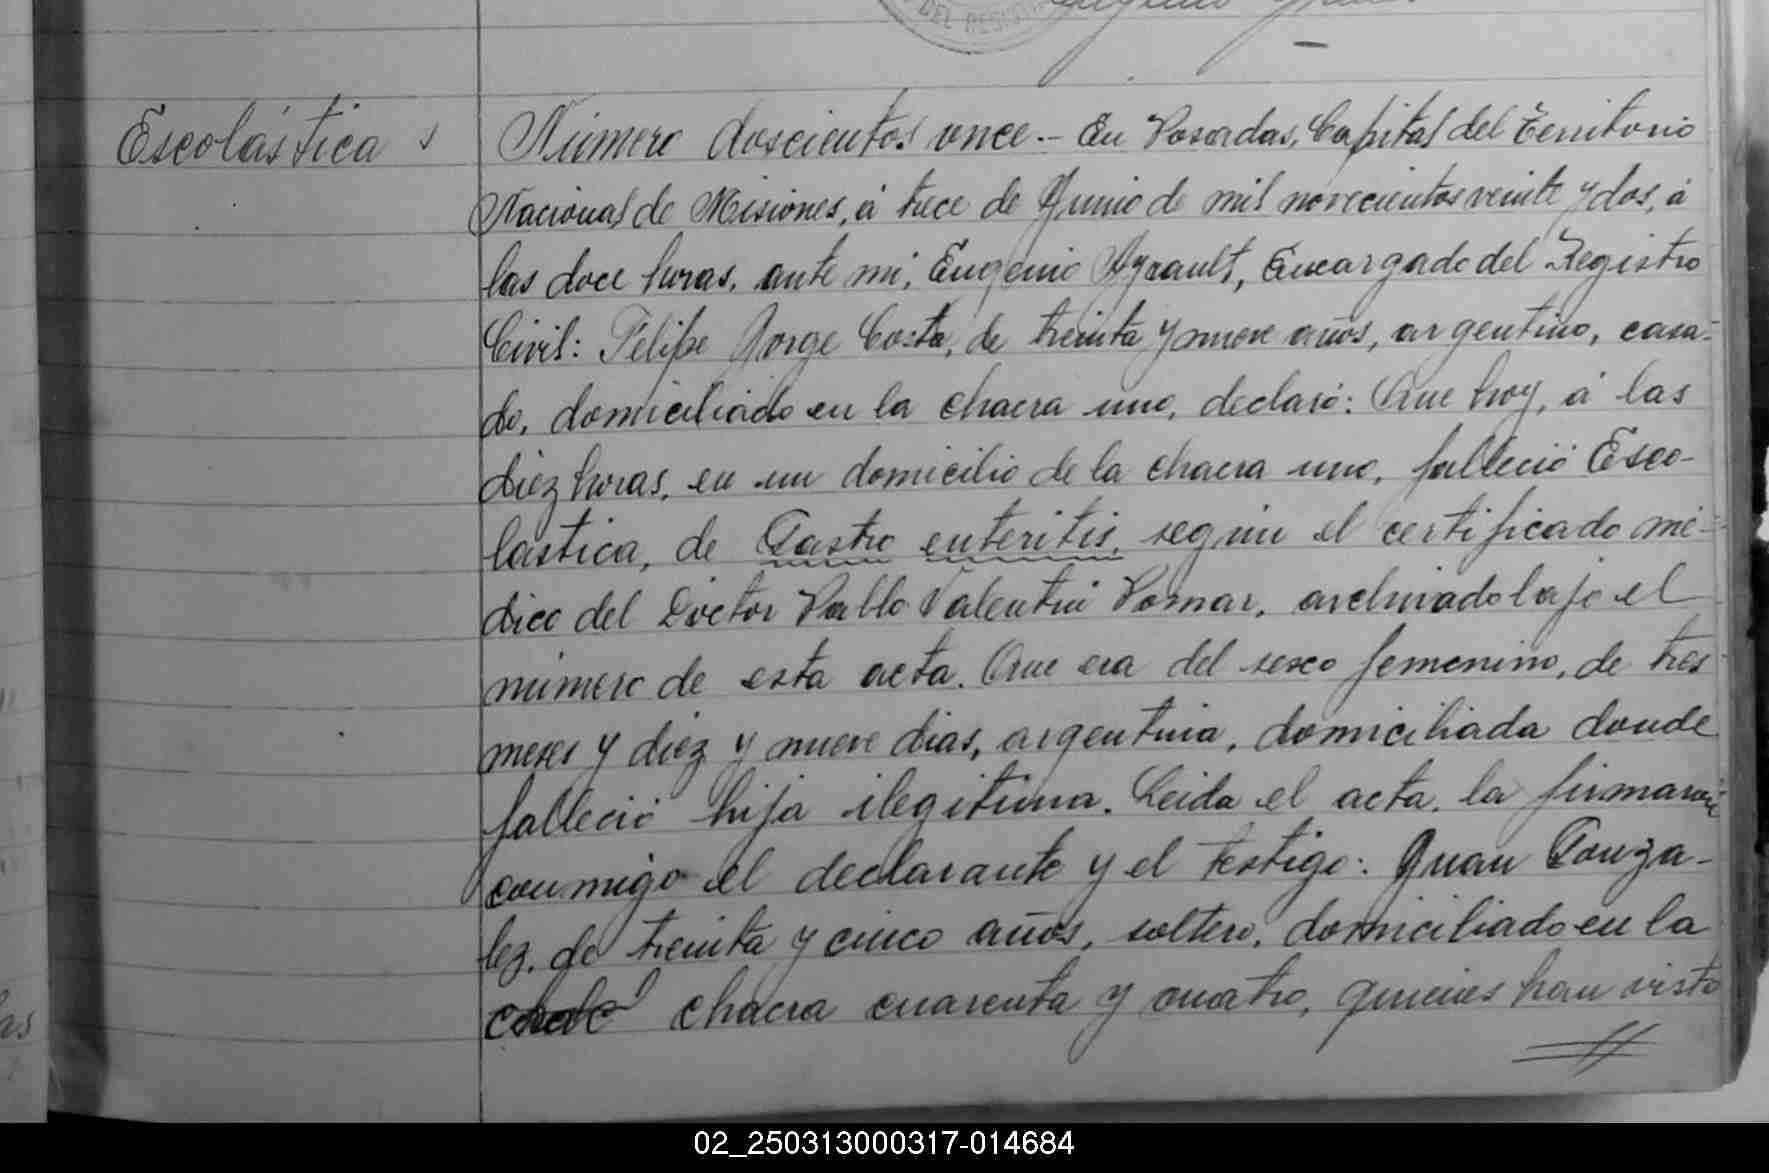 DEL REGISTRO
Escolástica
Número doscientos once.- En Posadas, Capital del Territorio
Nacional de Misiones, á trece de Junio de mil novecientos veinte y dos, á
las doce horas, ante mi, Eugenio Ayrault, Encargado del Registro
Civil: Felipe Jorge Costa, de treinta y nueve años, argentino, casa-
do, domiciliado en la chacra uno, declaró: Que hoy, á las
diez horas, en un domicilio de la chacra uno, falleció Esco-
lástica, de Gastro enteritis, según el certificado mé-
dico del Doctor Pablo Valentin Pomar, archivado bajo el
número de esta acta. Que era del sexo femenino, de tres
meses y diez y nueve dias, argentina, domiciliada donde
falleció hija ilegitima. Leida el acta, la firmaron
conmigo el declarante y el testigo: Juan Gonza-
lez, de treinta y cinco años, soltero, domiciliado en la
chacra cuarenta y cuatro, quienes han visto
as
02_250313000317-014684